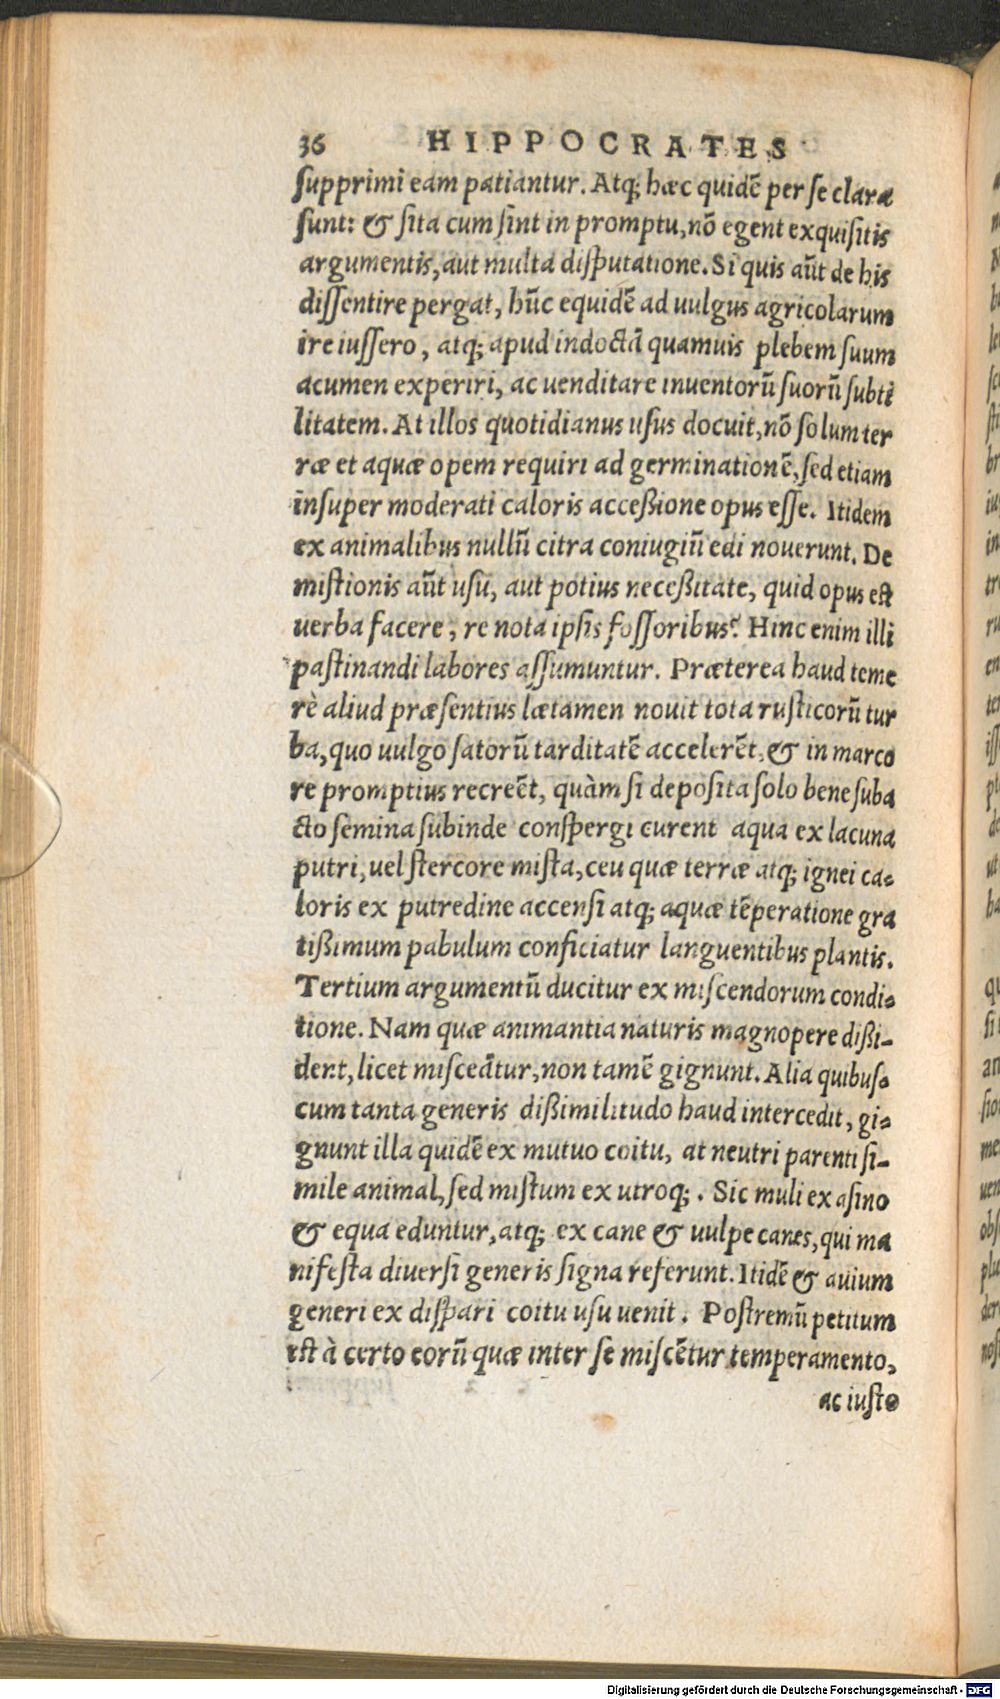 36 HIPPOCRATES
supprimi eam patiantur. Atq; hæc quidẽ per se clara
sunt: & sita cum sint in promptu, nõ egent exquisitis
argumentis, aut multa disputatione. Si quis aũt de his
dissentire pergat, hũc equidẽ ad uulgus agricolarum
ire iussero, atq; apud indoctã quamuis plebem suum
acumen experiri, ac uenditare inuentorũ suorũ subti
litatem. At illos quotidianus usus docuit, nõ solum ter
ræ et aquæ opem requiri ad germinationẽ, sed etiam
insuper moderati caloris acceßione opus esse. Itidem
ex animalibus nullũ citra coniugiũ edi nouerunt. De
mistionis aũt usu, aut potius neceßitate, quid opus est
uerba facere, re nota ipsis fossoribus? Hinc enim illi
pastinandi labores assumuntur. Præterea haud teme
rè aliud præsentius lætamen nouit tota rusticorũ tur
ba, quo uulgo satorũ tarditatẽ accelerẽt, & in marco
re promptius recreẽt, quàm si deposita solo bene suba
cto semina subinde conspergi curent aqua ex lacuna
putri, uel stercore mista, ceu quæ terræ atq; ignei ca-
loris ex putredine accensi atq; aquæ tẽperatione gra
tißimum pabulum conficiatur languentibus plantis.
Tertium argumentũ ducitur ex miscendorum condi-
tione. Nam quæ animantia naturis magnopere dißi-
dent, licet misceãtur, non tamẽ gignunt. Alia quibus-
cum tanta generis dißimilitudo haud intercedit, gi-
gnunt illa quidẽ ex mutuo coitu, at neutri parenti si-
mile animal, sed mistum ex utroq;. Sic muli ex asino
& equa eduntur, atq; ex cane & uulpe canes, qui ma
nifesta diuersi generis signa referunt. Itidẽ & auium
generi ex dispari coitu usu uenit. Postremũ petitum
est à certo eorũ quæ inter se miscẽtur temperamento,
ac iusto
Digitalisierung gefördert durch die Deutsche Forschungsgemeinschaft - DFG